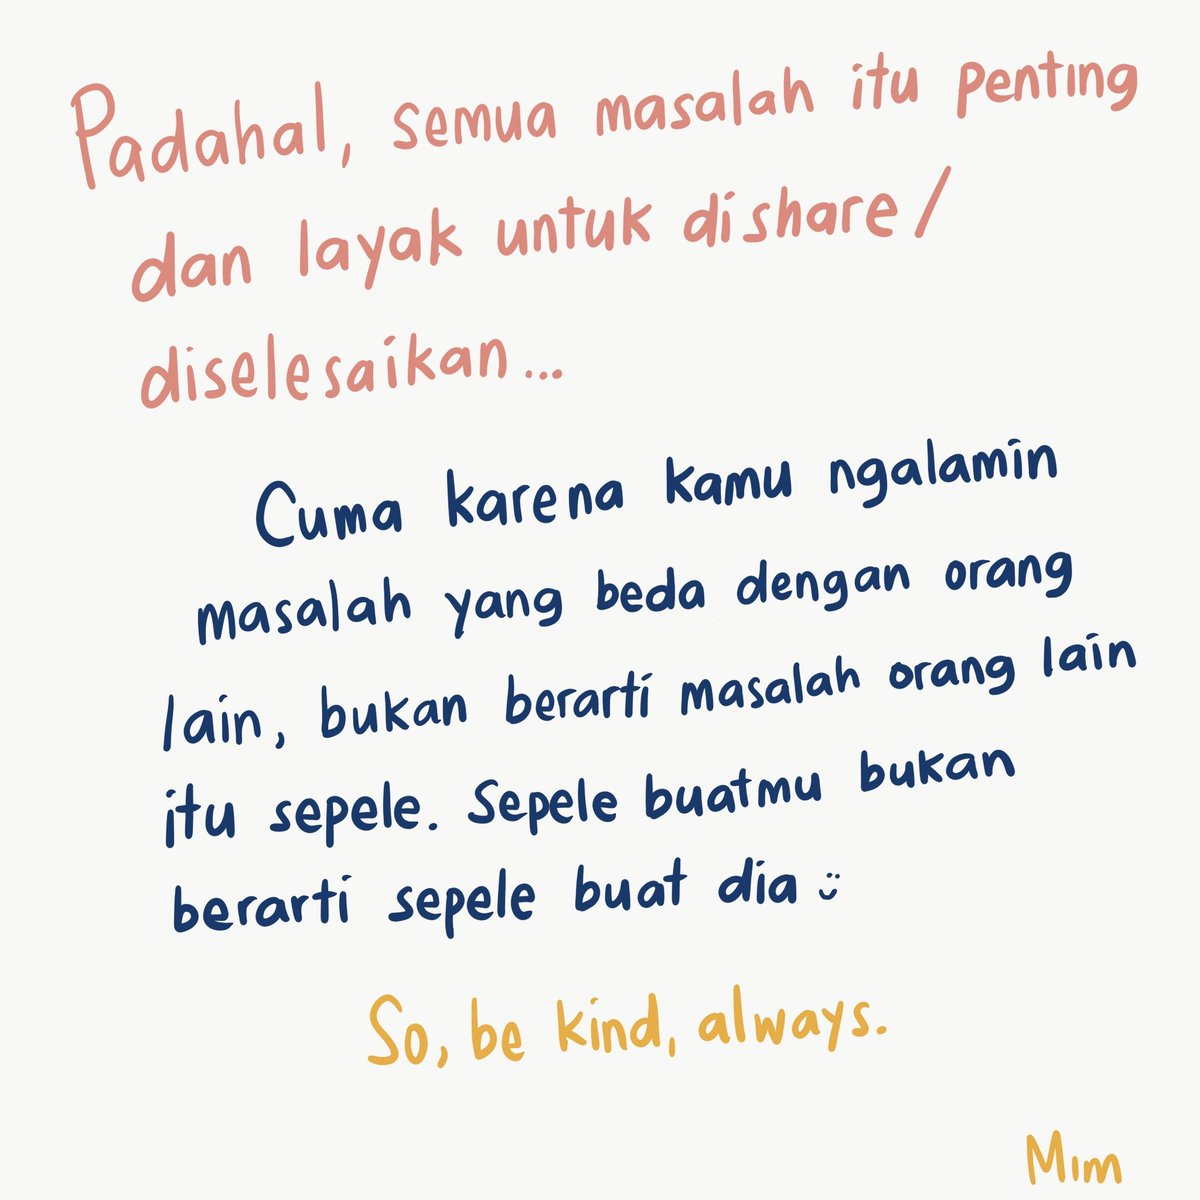 Padahal, semua masalah itu penting
dan layak untuk dishare/
diselesaikan...
Cuma karena kamu ngalamin
masalah yang beda dengan orang
lain, bukan berarti masalah orang lain
itu sepele. Sepele buatmu bukan
berarti sepele buat dia
So, be kind, always.
Mim